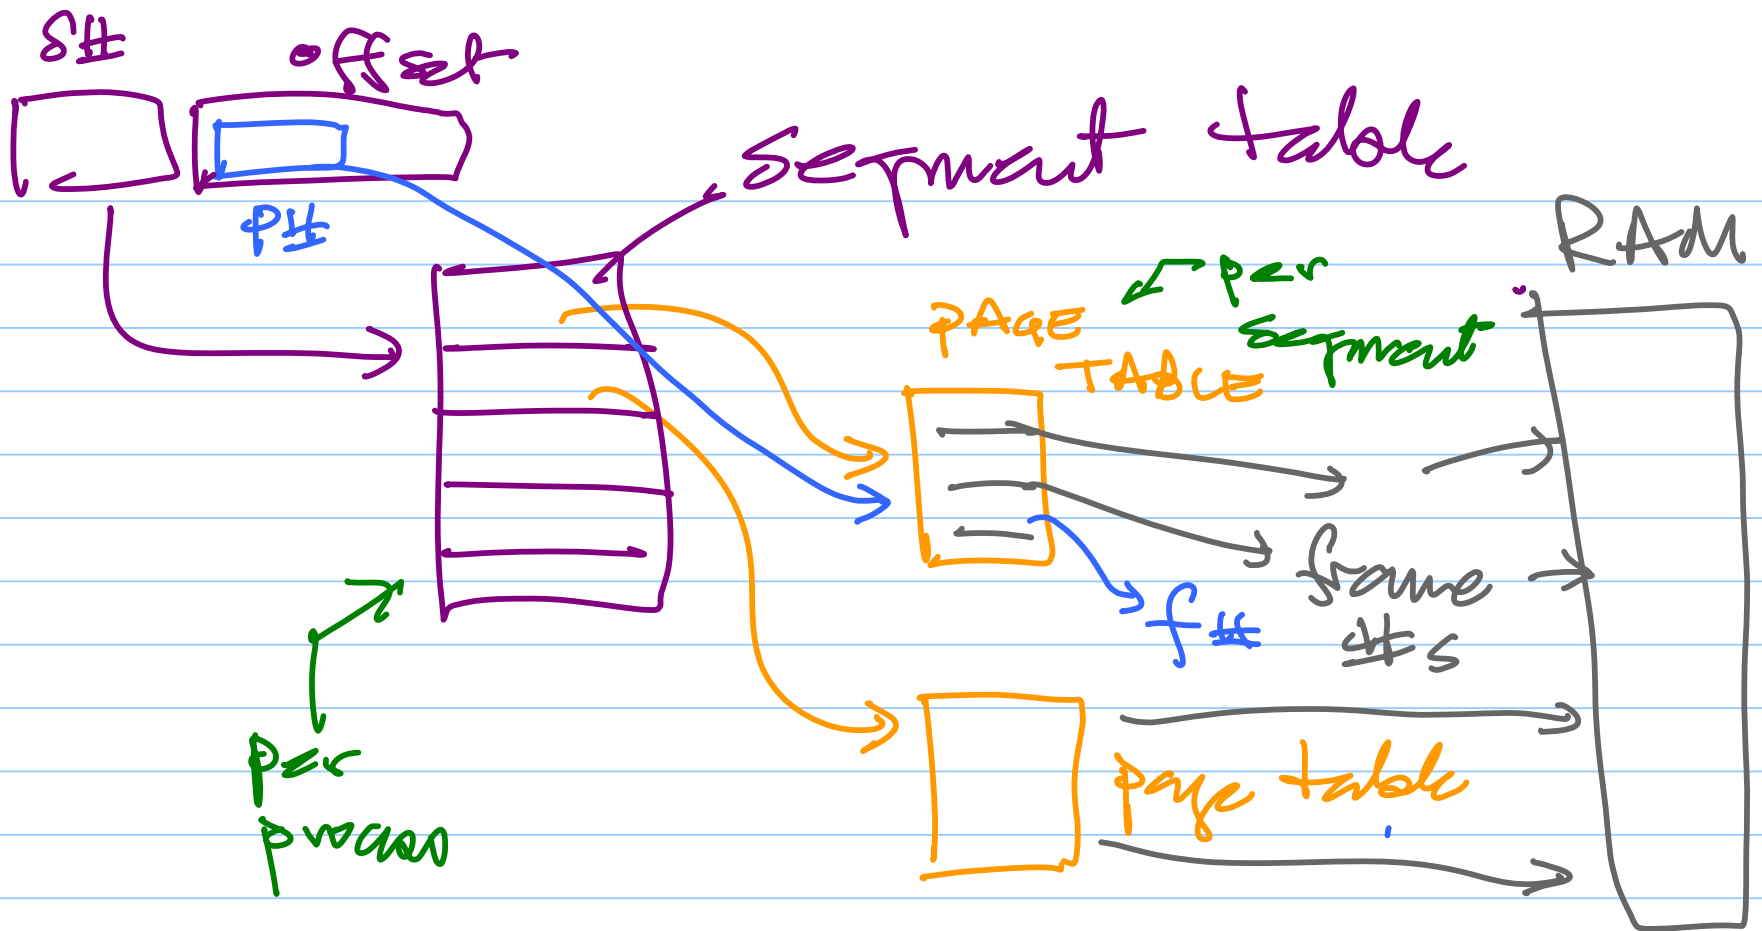 S#
offset
segment table
P#
RAM
per
segment
PAGE
TABLE
frame
#s
f#
per
process
page table